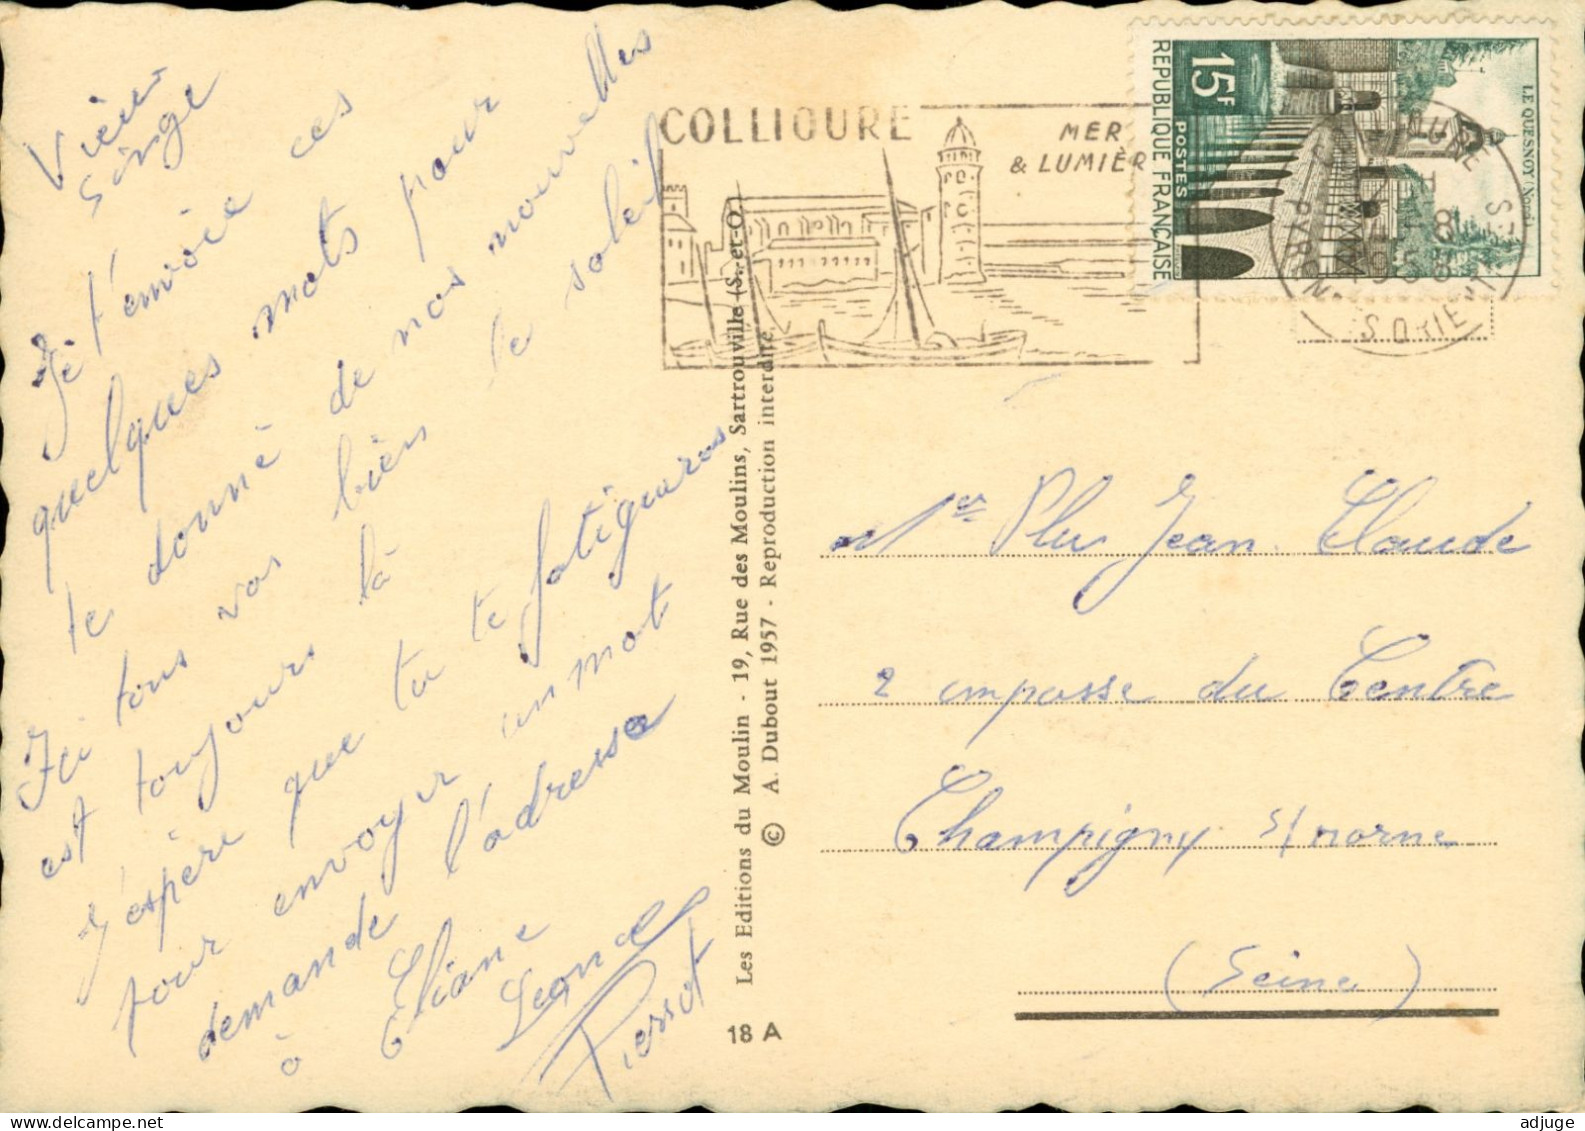 Vieux
singe
Je t'envoie ces
quelques mots pour
te donné de nos nouvelles
Ici tous vas bièn le soleil
est toujours là
J'espère que tu te fatigueras
pour envoyer un mot
demande l'adresse
à Eliane
Leonce
Pierrot
COLLIOURE
MER
& LUMIÈR
15F
REPUBLIQUE FRANÇAISE
POSTES
LE QUESNOY (Nord)
PYRÉN. ORIENT
1958
Les Editions du Moulin - 19, Rue des Moulins, Sartrouville (S.-et-O.)
© A. Dubout 1957 - Reproduction interdite.
18 A
Mer Plu Jean Claude
2 impasse du Centre
Champigny s/ marne
(Seine)
adjuge
delcampe.net